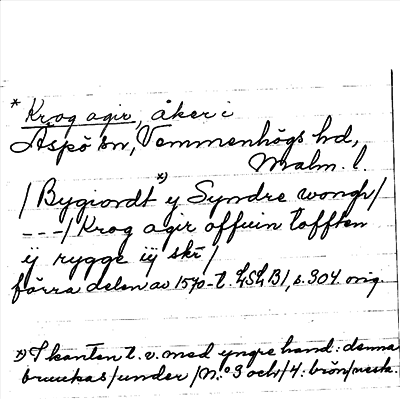 * Krog agir, åker i
Äspö sn, Vemmenhögs hd,
Malm. l.
/Bygiordt x) y Syndre wongr/
---/Krog agir offuin tofften
ij rygge iij skr/
förra delen av 1570-t. LSLB1, s. 304. orig.
x) I kanten t. v. med yngre hand: denna
bruukas/under/N:o 3 och/4: